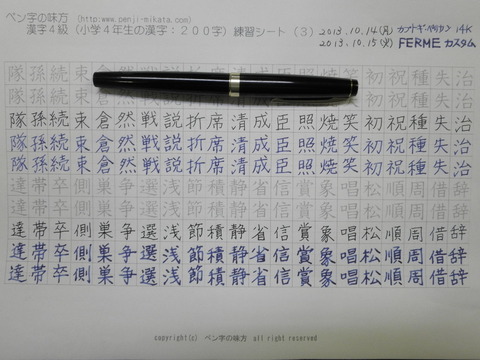 ペン字の味方 (http://www.penji-mikata.com)
漢字４級（小学４年生の漢字：２００字）練習シート（３）
2013.10.14(月) 14K
2013.10.15(火) FERME カスタム
隊孫続束倉然戦説折席清成臣照焼笑初祝種失治
隊孫続束倉然戦説折席清成臣照焼笑初祝種失治
隊孫続束倉然戦説折席清成臣照焼笑初祝種失治
隊孫続束倉然戦説折席清成臣照焼笑初祝種失治
隊孫続束倉然戦説折席清成臣照焼笑初祝種失治
達帯卒側巣争選浅節積静省信賞象唱松順周借辞
達帯卒側巣争選浅節積静省信賞象唱松順周借辞
達帯卒側巣争選浅節積静省信賞象唱松順周借辞
達帯卒側巣争選浅節積静省信賞象唱松順周借辞
達帯卒側巣争選浅節積静省信賞象唱松順周借辞
copyright(c) ペン字の味方 all right reserved